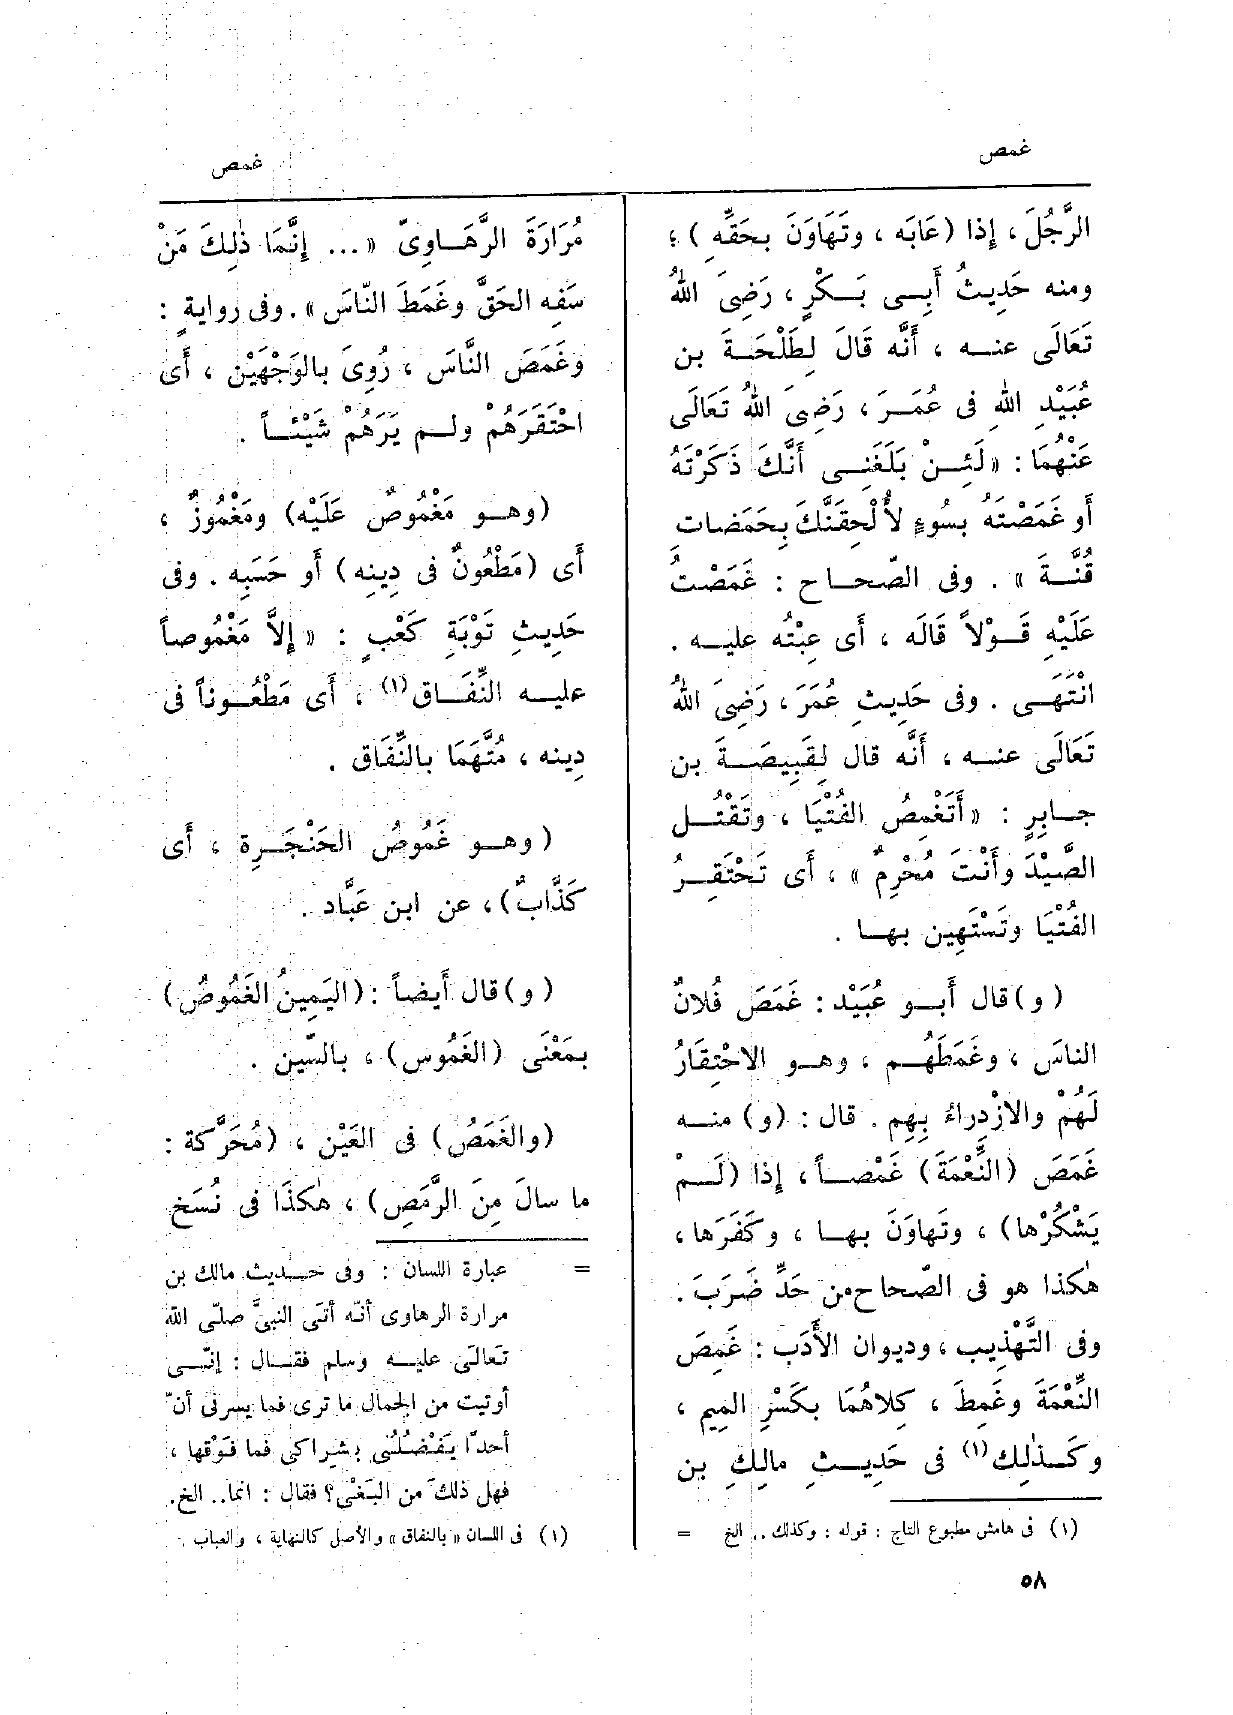 غمص
الرَّجُلَ ، إِذا (عَابَه ، وتَهَاوَنَ بحَقِّهِ ) ؛
ومنه حَدِيثُ أَبِى بَكْرٍ ، رَضِىَ اللهُ
تَعَالَى عنه ، أَنَّه قَالَ لِطَلْحَةَ بن
عُبَيْدِ اللهِ فى عُمَرَ ، رَضِىَ اللهُ تَعَالَى
عَنْهُمَا : « لَئِنْ بَلَغَنِى أَنَّكَ ذَكَرْتَهُ
أَو غَمَصْتَه بسُوءٍ لأُلْحِقَنَّكَ بحَمَضات
قُنَّة » . وفى الصّحاح : غَمَصْتُ
عَلَيْهِ قَوْلاً قَالَه ، أَى عِبْتُه عليه .
انْتَهَى . وفى حَدِيثِ عُمَرَ ، رَضِىَ اللهُ
تَعَالَى عنه ، أَنَّه قال لِقَبِيصَةَ بن
جابِرٍ : « أَتَغْمِصُ الفُتْيَا ، وتَقْتُل
الصَّيْدَ وأَنْتَ مُحْرِمٌ » ، أَى تَحْتَقِرُ
الفُتْيَا وتَسْتَهِين بها .
( و ) قال أَبو عُبَيْد : غَمَصَ فُلانٌ
الناسَ ، وغَمَطَهُم ، وهو الاحْتِقَارُ
لَهُمْ والازْدِراءُ بِهِم . قال : (و) منه
غَمَصَ (النِّعْمَةَ) غَمْصاً ، إِذا (لَمْ
يَشْكُرْها) ، وتَهاوَنَ بها ، وكَفَرَها ،
هٰكذا هو فى الصّحاح من حَدِّ ضَرَبَ .
وفى التَّهْذِيب ، وديوان الأَدَب : غَمِصَ
النِّعْمَةَ وغَمِطَ ، كِلاهُمَا بكَسْرِ الميم ،
وكَذٰلِك (١) فى حَدِيثِ مالِكِ بن
(١) فى هامش مطبوع التاج : قوله : وكذلك .. الخ =
غمص
مُرَارَةَ الرَّهَاوِىّ « ... إِنَّمَا ذٰلِكَ مَنْ
سَفِه الحَقَّ وغَمَطَ النّاسَ » . وفى روايةٍ :
وغَمَصَ النَّاسَ ، رُوِىَ بالوَجْهَيْن ، أَى
احْتَقَرَهُمْ ولم يَرَهُمْ شَيْئاً .
(وهو مَغْمُوصٌ عَلَيْه) ومَغْمُوزٌ ،
أَى (مَطْعُونٌ فى دِينِه) أَو حَسَبِه . وفى
حَدِيثِ تَوْبَةِ كَعْبٍ : « إِلاَّ مَغْمُوصاً
عليه النِّفَاق (١) ، أَى مَطْعُوناً فى
دِينه ، مُتَّهَمَا بالنِّفَاق .
( وهو غَمُوصُ الحَنْجَرِة ، أَى
كَذَّابٌ) ، عن ابن عَبَّاد .
( و) قال أَيضاً : (اليَمِينُ الغَمُوصُ)
بمَعْنَى (الغَمُوس) ، بالسِّين .
(والغَمَصُ) فى العَيْن ، (مُحَرَّكة :
ما سالَ مِنَ الرَّمَصِ) ، هٰكَذَا فى نُسَخ
= عبارة اللسان : وفى حديث مالك بن
مرارة الرهاوى أنّه أتى النبىَّ صلّى الله
تعالى عليه وسلم فقال : إنّى
أوتيت من الجمال ما ترى فما يسرنى أنّ
أحدًا يَفْضُلُنى بشِراكى فما فَوْقها ،
فهل ذلك من البَغْى؟ فقال : انما .. الخ.
(١) فى اللسان « بالنفاق » والأصل كالنهاية ، والعباب .
٥٨